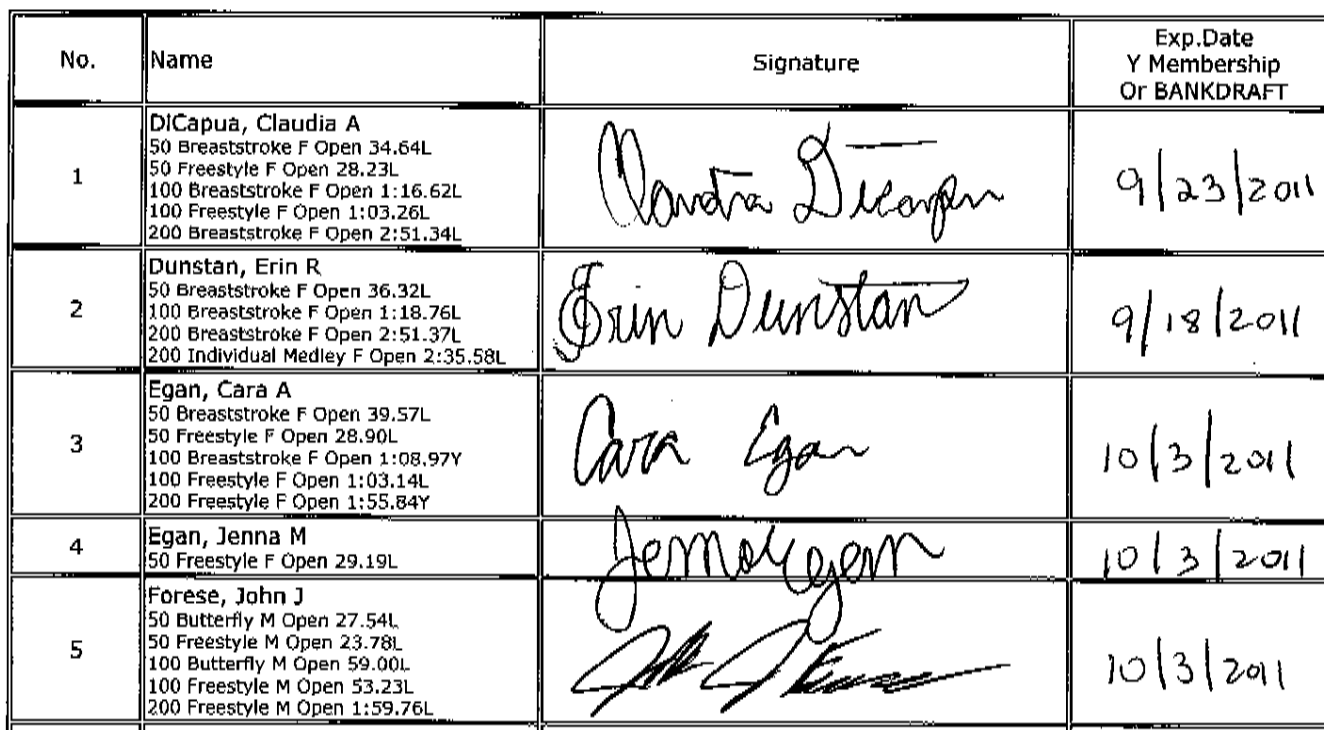 No.
Name
Signature
Exp.Date
Y Membership
Or BANKDRAFT
1
DiCapua, Claudia A
50 Breaststroke F Open 34.64L
50 Freestyle F Open 28.23L
100 Breaststroke F Open 1:16.62L
100 Freestyle F Open 1:03.26L
200 Breaststroke F Open 2:51.34L
Claudia Dicapua
9/23/2011
2
Dunstan, Erin R
50 Breaststroke F Open 36.32L
100 Breaststroke F Open 1:18.76L
200 Breaststroke F Open 2:51.37L
200 Individual Medley F Open 2:35.58L
Erin Dunstan
9/18/2011
3
Egan, Cara A
50 Breaststroke F Open 39.57L
50 Freestyle F Open 28.90L
100 Breaststroke F Open 1:08.97Y
100 Freestyle F Open 1:03.14L
200 Freestyle F Open 1:55.84Y
Cara Egan
10/3/2011
4
Egan, Jenna M
50 Freestyle F Open 29.19L
Jenna Egan
10/3/2011
5
Forese, John J
50 Butterfly M Open 27.54L
50 Freestyle M Open 23.78L
100 Butterfly M Open 59.00L
100 Freestyle M Open 53.23L
200 Freestyle M Open 1:59.76L
10/3/2011